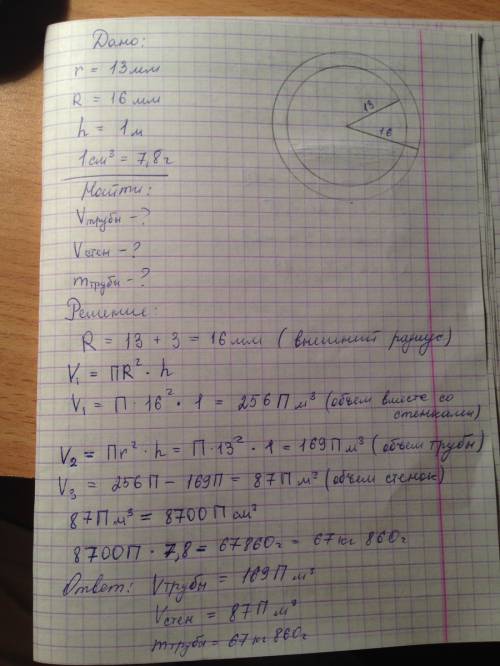 Дано:
r = 13 мм
R = 16 мм
h = 1 м
1 см³ = 7,8 г
Найти:
Vтрубы - ?
Vстен - ?
mтрубы - ?
Решение:
R = 13 + 3 = 16 мм (внешний радиус)
V₁ = ПR² · h
V₁ = П · 16² · 1 = 256 П м³ (объем вместе со
стенками)
V₂ = Пr² · h = П · 13² · 1 = 169 П м³ (объем трубы)
V₃ = 256 П - 169 П = 87 П м³ (объем стенок)
87 П м³ = 8700 П см³
8700 П · 7,8 = 67860 г = 67 кг 860 г
Ответ: Vтрубы = 169 П м³
Vстен = 87 П м³
mтрубы = 67 кг 860 г
13
16